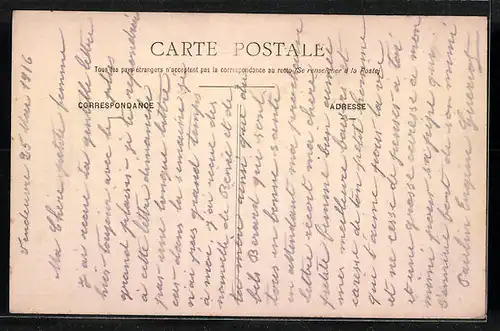 CARTE POSTALE
Tous les pays étrangers n'acceptent pas la correspondance au recto (Se renseigner à la Poste)
CORRESPONDANCE
ADRESSE
Vendeuvre 25 Mars 1916
Ma Chère petite femme
J'ai recu ta gentille lettre
hier toujour avec le plus
grand plaisir je te repondrai
à cette lettre dimanche
par une longue lettre
car dans la semaine je
n'ai pas grand temps
à moi, j'ai des
nouvelle de René et de
ainsi que du
fils Berard qui sont
tous en bonne sante
en attendant ma prochaine
lettre recoit ma cherie
petite femme bien aimée
mes meilleure baisers et
caresse de ton petit homme
qui t'aime pour la vie
et ne cesse de penser à toi
et une grosse caresse a mon
mimi pour sa pipe que
de son mimi
Paulin Eugène